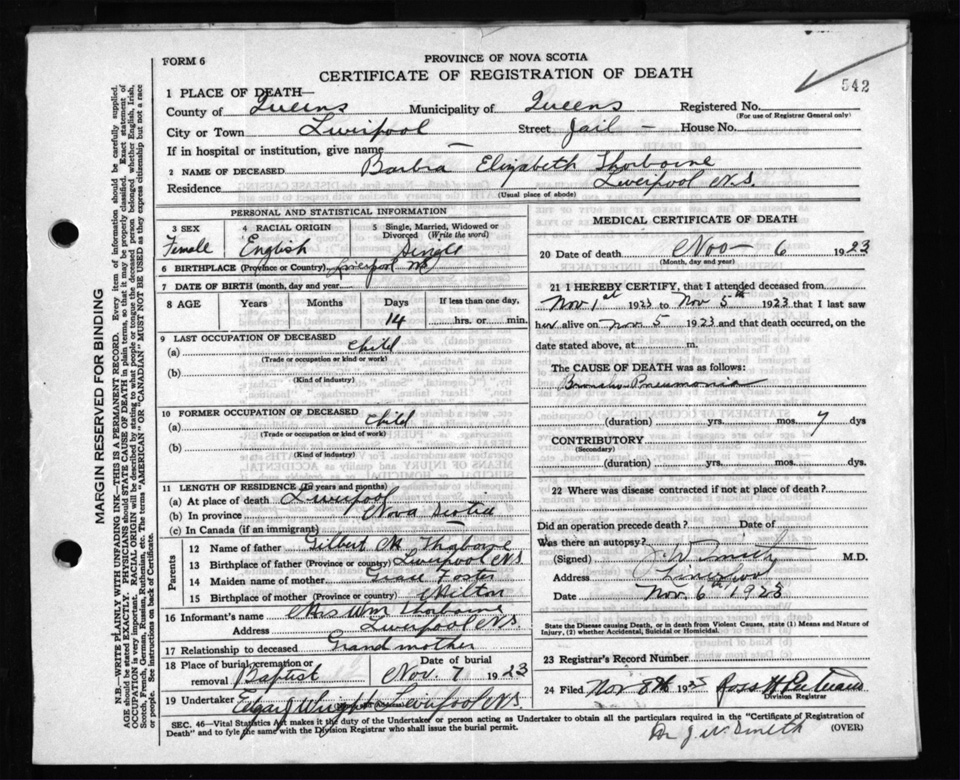 FORM 6
PROVINCE OF NOVA SCOTIA
CERTIFICATE OF REGISTRATION OF DEATH
542
1 PLACE OF DEATH—
County of Queens Municipality of Queens Registered No.
(For use of Registrar General only)
City or Town Liverpool Street Jail — House No.
If in hospital or institution, give name —
2 NAME OF DECEASED Barbra Elizabeth Thorborne
Residence Liverpool N.S.
(Usual place of abode)
PERSONAL AND STATISTICAL INFORMATION
3 SEX 4 RACIAL ORIGIN 5 Single, Married, Widowed or
Divorced (Write the word)
Female English Single
6 BIRTHPLACE (Province or Country) Liverpool NS
7 DATE OF BIRTH (month, day and year)
8 AGE Years Months Days If less than one day,
14 hrs. or min.
9 LAST OCCUPATION OF DECEASED
(a) Child
(Trade or occupation or kind or work)
(b)
(Kind of industry)
10 FORMER OCCUPATION OF DECEASED
(a) Child
(Trade or occupation or kind of work)
(b)
(Kind of industry)
11 LENGTH OF RESIDENCE (in years and months)
(a) At place of death Liverpool
(b) In province Nova Scotia
(c) In Canada (if an immigrant) —
Parents
12 Name of father Gilbert M Thorborne
13 Birthplace of father (Province or country) Liverpool N.S.
14 Maiden name of mother Grace Foster
15 Birthplace of mother (Province or country) Milton
16 Informant's name Mrs Wm Thorborne
Address Liverpool N.S.
17 Relationship to deceased Grand mother
18 Place of burial, cremation or Date of burial
removal Baptist Nov. 7 1923
19 Undertaker Edgar Wright Liverpool N.S.
MEDICAL CERTIFICATE OF DEATH
20 Date of death Nov — 6 1923
(Month, day and year)
21 I HEREBY CERTIFY, that I attended deceased from
Nov 1st 1923 to Nov 5th 1923 that I last saw
her alive on Nov. 5 1923 and that death occurred, on the
date stated above, at m.
The CAUSE OF DEATH was as follows:
Broncho-Pneumonia
(duration) yrs. mos. 7 dys
CONTRIBUTORY
(Secondary)
(duration) yrs. mos. dys.
22 Where was disease contracted if not at place of death?
Did an operation precede death? Date of
Was there an autopsy?
(Signed) J. W. Smith M.D.
Address Liverpool
Date Nov. 6th 1923
State the Disease causing Death, or in death from Violent Causes, state (1) Means and Nature of
Injury, (2) whether Accidental, Suicidal or Homicidal.
23 Registrar's Record Number
24 Filed Nov 8th 1923 Ross H
Division Registrar
SEC. 46—Vital Statistics Act makes it the duty of the Undertaker or person acting as Undertaker to obtain all the particulars required in the "Certificate of Registration of
Death" and to fyle the same with the Division Registrar who shall issue the burial permit.
(OVER)
Dr J. W. Smith
MARGIN RESERVED FOR BINDING
N.B.—WRITE PLAINLY WITH UNFADING INK—THIS IS A PERMANENT RECORD. Every item of information should be carefully supplied.
AGE should be stated EXACTLY. PHYSICIANS should STATE CAUSE OF DEATH in plain terms, so that it may be properly classified. Exact statement of
OCCUPATION is very important. RACIAL ORIGIN will be described by stating to what people or tongue the deceased person belonged whether English, Irish,
Scotch, French, German, Russian, Ruthenian, etc. The terms "AMERICAN" OR "CANADIAN" MUST NOT BE USED as they express citizenship but not a race
or people. See instructions on back of Certificate.